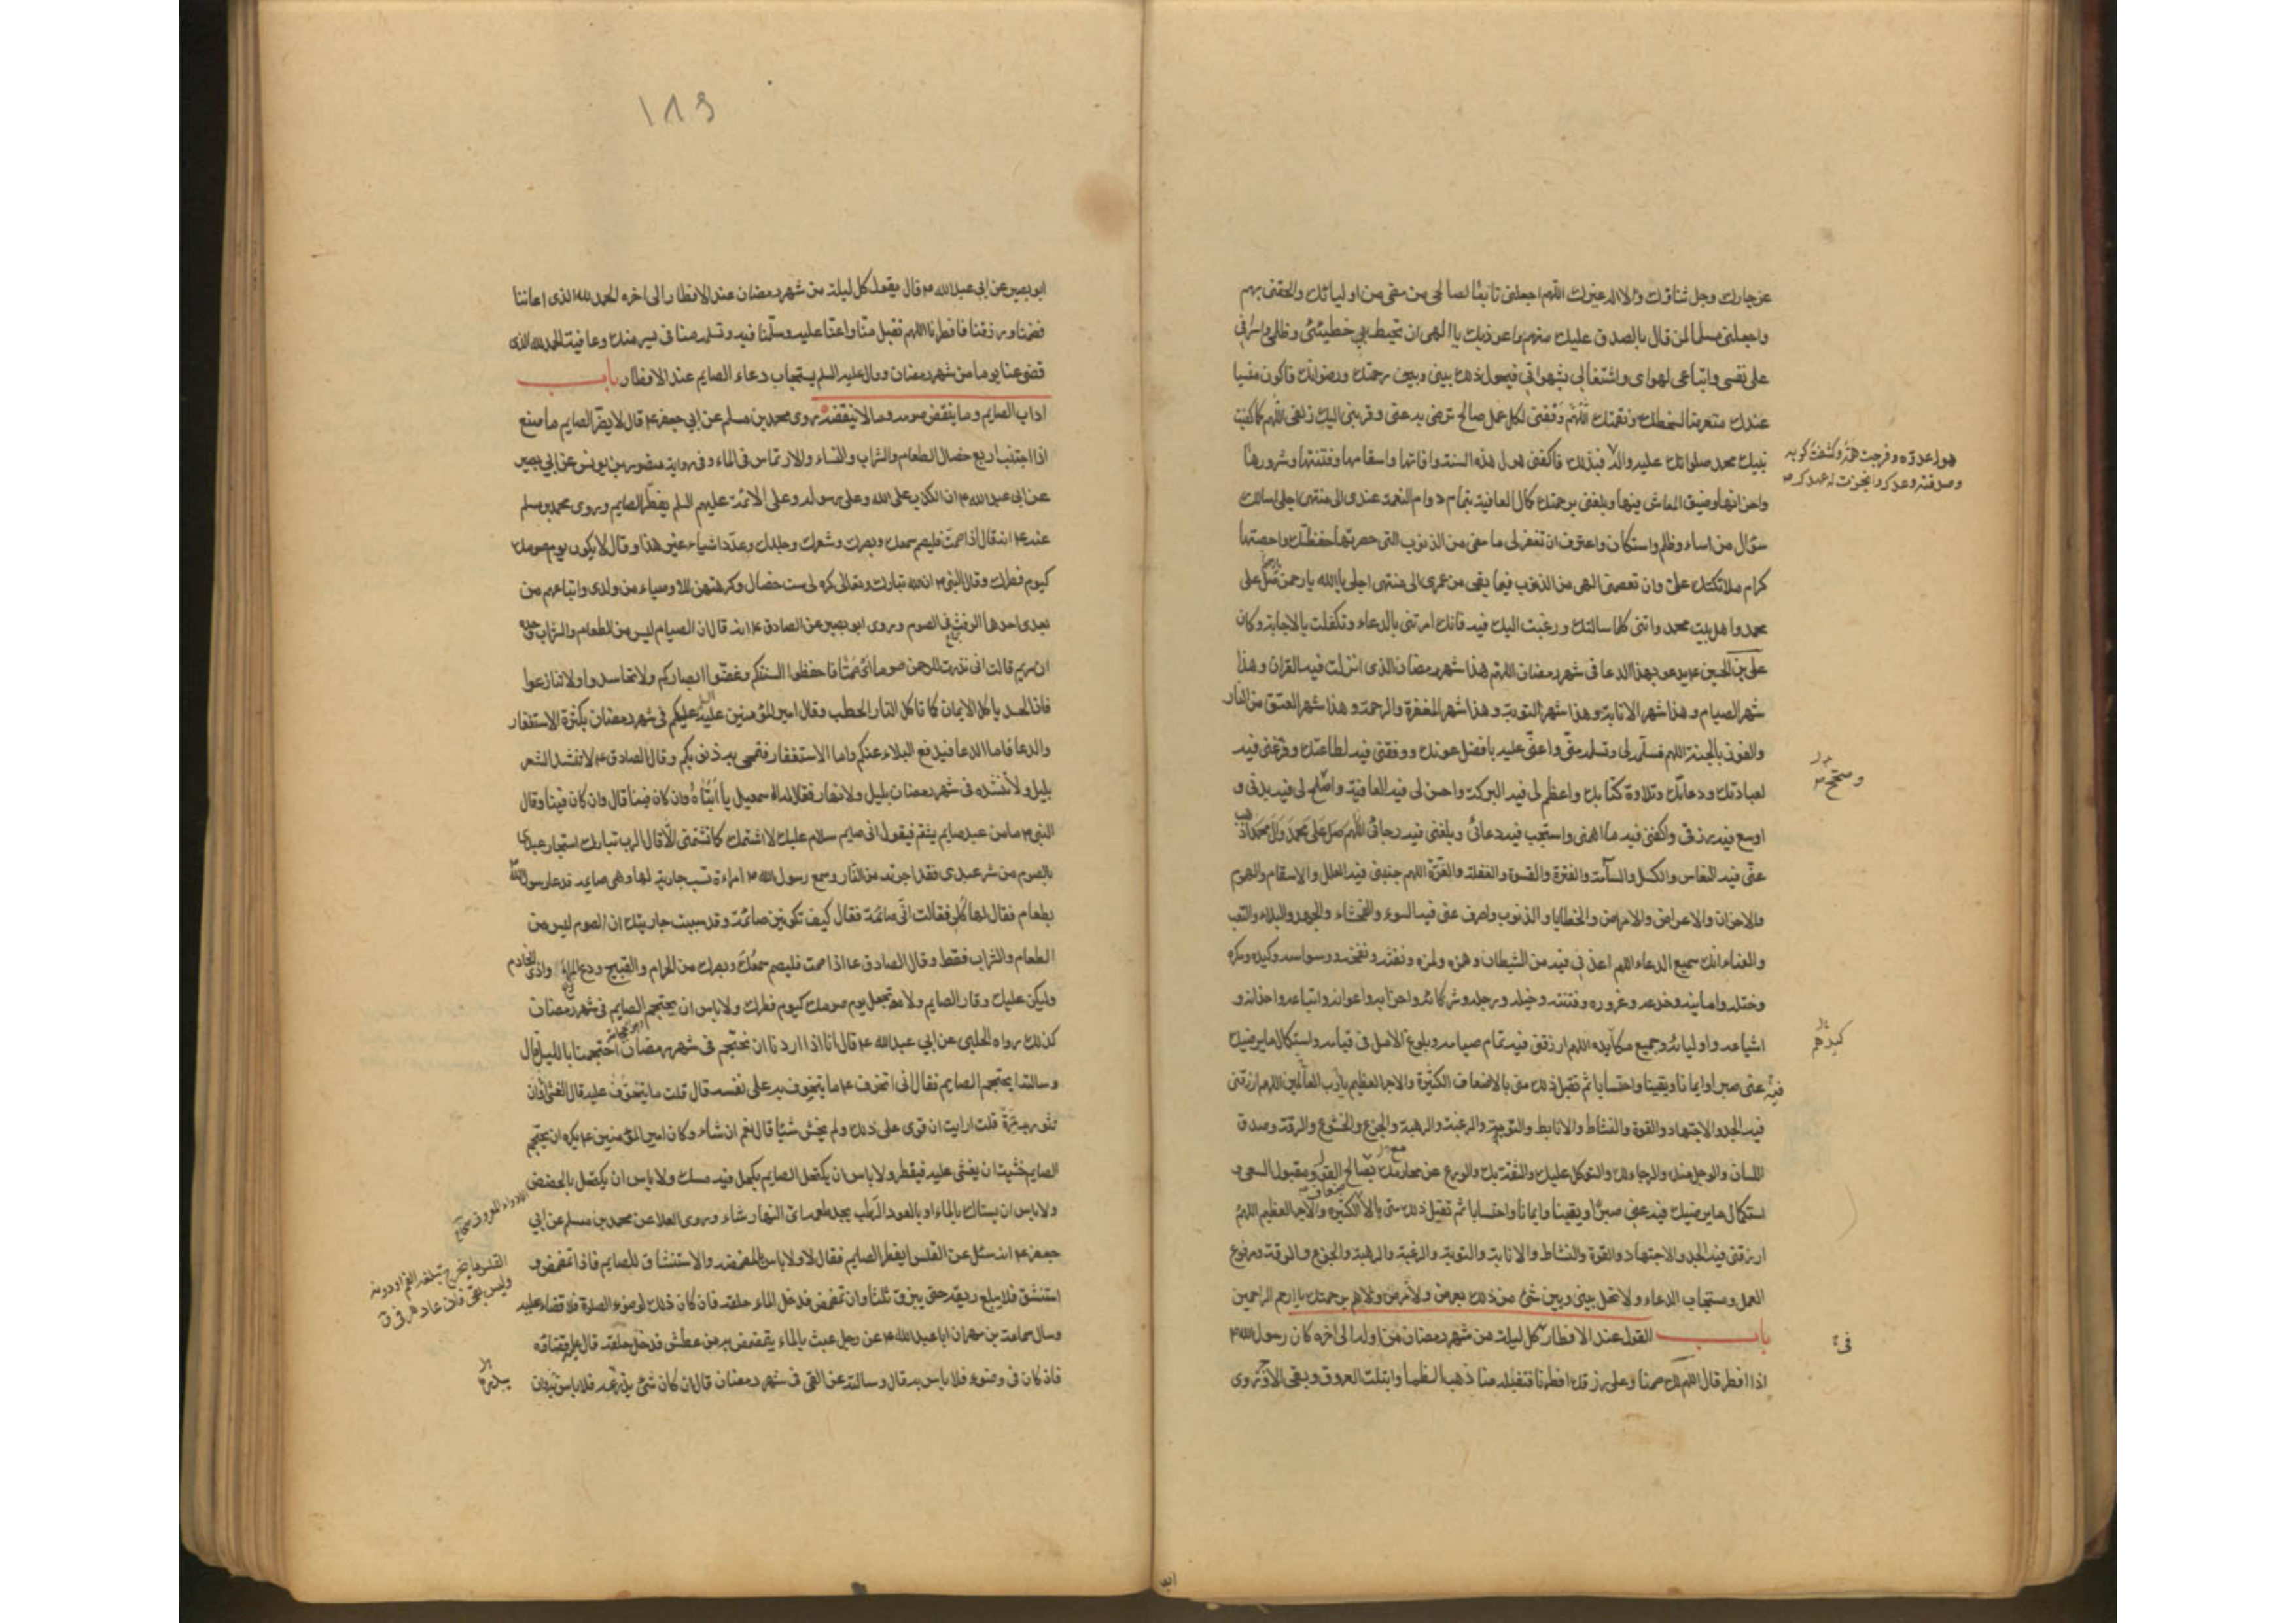 عز جارك وجل ثناؤك ولا اله غيرك اللهم اجعلني تابعا لصالحي من مضى من اوليائك والحقني بهم
واجعلني مسلما لمن قال بالصدق عليك منهم واعوذ بك يا الهى ان تحيط بي خطيئتي وظلمى واسرافي
على نفسي واتباعى لهواى واشتغالي بشهواتي فيحول ذلك بيني وبين رحمتك ورضوانك فاكون منسيا
عندك متعرضا لسخطك ونقمتك اللهم وفقني لكل عمل صالح ترضى به عنى وقربني اليك زلفى اللهم كما كفيت
نبيك محمد صلواتك عليه واله فبذلك فاكفني هول هذه السنة وافاتها واسقامها وفتنتها وشرورها
هول عدوه وفرجت همه وكشفت كربه
وصدقته وعدك وانجزت له عهدك صه
واحزانها وضيق المعاش فيها وبلغني برحمتك كمال العافية بتمام دوام النعمة عندى الى منتهى اجلى اسالك
سؤال من اساء وظلم واستكان واعترف ان تغفر لى ما مضى من الذنوب التى حصرتها حفظتك واحصتها
كرام ملائكتك علىّ وان تعصمني الهى من الذنوب فيما بقى من عمرى الى منتهى اجلى يا الله يا رحمن صل على
محمد واهل بيت محمد واتنى كلما سالتك ورغبت اليك فيه فانك امرتني بالدعاء وتكفلت بالاجابة وكان
على بن الحسين ع يدعو بهذا الدعا فى شهر رمضان اللهم هذا شهر رمضان الذى انزلت فيه القران وهذا
شهر الصيام وهذا شهر الانابة وهذا شهر التوبة وهذا شهر المغفرة والرحمة وهذا شهر العتق من النار
والفوز بالجنة اللهم فسلمه لى وتسلمه منّى واعنّى عليه بافضل عونك ووفقني فيه لطاعتك وفرّغنى فيه
لعبادتك ودعائك وتلاوة كتابك واعظم لى فيه البركة واحسن لى فيه العافية واصلح لى فيه بدنى و
وصحح
اوسع فيه رزقى واكفنى فيه ما اهمنى واستجب فيه دعائى وبلغنى فيه رجائى اللهم صل على محمد وال محمد اذهب
عنّى فيه النعاس والكسل والسآمة والفترة والقسوة والغفلة والغرّة اللهم جنبنى فيه العلل والاسقام والهموم
والاحزان والاعراض والامراض والخطايا والذنوب واصرف عنى فيه السوء والفحشاء والجهد والبلاء والتعب
والعناء انك سميع الدعاء اللهم اعذنى فيه من الشيطان وهمزه ولمزه ونفثه ونفخه ووسواسه وكيده ومكره
وختله وامانيه وخدعه وغروره وفتنته وخيله ورجله وشركائه واحزابه واعوانه واتباعه واخدانه و
اشياعه واوليائه وجميع مكايده اللهم ارزقنى فيه تمام صيامه وبلوغ الامل فى قيامه واستكمال ما يرضيك
كيدهم
فيه عنى صبرا وايمانا ويقينا واحتسابا ثم تقبل ذلك منى بالاضعاف الكثيرة والاجر العظيم يا رب العالمين اللهم ارزقنى
فيه الجد والاجتهاد والقوة والنشاط والانابة والتوبة والرغبة والرهبة والجزع والخشوع والرقة وصدق
اللسان والوجل منك والرجاء لك والتوكل عليك والثقة بك والورع عن محارمك بصالح القول ومقبول السعى و
استكمال ما يرضيك فيه عنى صبرا ويقينا وايمانا واحتسابا ثم تقبل ذلك منى بالاضعاف الكثيرة والاجر العظيم اللهم
ارزقنى فيه الجد والاجتهاد والقوة والنشاط والانابة والتوبة والرغبة والرهبة والجزع والرقة ومرفوع
العمل ومستجاب الدعاء ولا تحل بينى وبين شئ من ذلك بعرض ولا مرض ولا هم برحمتك يا ارحم الراحمين
باب القول عند الافطار كل ليلة من شهر رمضان من اوله الى اخره كان رسول الله ص
فى
اذا افطر قال اللهم لك صمنا وعلى رزقك افطرنا فتقبله منا ذهب الظما وابتلت العروق وبقى الاجر وروى
ابو
۱۸۹
ابو بصير عن ابي عبد الله ع قال يقول كل ليلة من شهر رمضان عند الافطار الى اخره الحمد لله الذى اعاننا
فصمنا ورزقنا فافطرنا اللهم تقبل منّا واعنّا عليه وسلّمنا فيه وتسلمه منا فى يسر منك وعافية الحمد لله الذى
قضى عنا يوما من شهر رمضان وقال عليه السلم يستجاب دعاء الصايم عند الافطار باب
اداب الصايم وما ينقض صومه وما لا ينقضه روى محمد بن مسلم عن ابي جعفر ع قال لا يضرّ الصايم ما صنع
اذا اجتنب اربع خصال الطعام والشراب والنساء والارتماس فى الماء وفى رواية منصور بن يونس عن ابي بصير
عن ابى عبد الله ع ان الكذب على الله وعلى رسوله وعلى الائمة عليهم السلم يفطّر الصايم وروى محمد بن مسلم
عنه ع انه قال اذا صمت فليصم سمعك وبصرك وشعرك وجلدك وعدّد اشياء غير هذا وقال لا يكون يوم صومك
كيوم فطرك وقال النبى ص ان الله تبارك وتعالى كره لى ست خصال وكرهتهن للاوصياء من ولدى واتباعهم من
بعدى احدها الرفث فى الصوم وروى ابو بصير عن الصادق ع انه قال ان الصيام ليس من الطعام والشراب وحده
ان مريم قالت انى نذرت للرحمن صوما اى صمتا فاحفظوا السنتكم وغضّوا ابصاركم ولا تحاسدوا ولا تنازعوا
فان الحسد ياكل الايمان كما تاكل النار الحطب وقال امير المؤمنين عليه السلم عليكم فى شهر رمضان بكثرة الاستغفار
والدعا فاما الدعا فيدفع البلاء عنكم واما الاستغفار فتمحى به ذنوبكم وقال الصادق ع لا تنشد الشعر
بليل ولا تنشده فى شهر رمضان بليل ولا نهار فقال له اسمعيل يا ابتاه وان كان فينا قال وان كان فينا وقال
النبى ص ما من عبد صايم يشتم فيقول انى صايم سلام عليك لا اشتمك كما تشتمنى الّا قال الرب تبارك استجار عبدى
بالصوم من شر عبدى فقد اجرته من النّار وسمع رسول الله ص امراءة تسب جارية لها وهى صايمه فدعا رسول الله
بطعام فقال لها كلى فقالت انّى صائمة فقال كيف تكونين صائمة وقد سببت جاريتك ان الصوم ليس من
الطعام والشراب فقط وقال الصادق ع اذا صمت فليصم سمعك وبصرك من الحرام والقبيح ودع المراء واذى الخادم
وليكن عليك وقار الصايم ولا تجعل يوم صومك كيوم فطرك ولا باس ان يحتجم الصايم فى شهر رمضان
كذلك رواه الحلبى عن ابي عبد الله ع قال انا اذا اردنا ان نحتجم فى شهر رمضان احتجمنا بالليل قال
وسالته ايحتجم الصايم فقال انى اتخوف ع ما يتخوف به على نفسه قال قلت ما يتخوف عليه قال الغشى او ان
تثور به مرّة قلت ارايت ان قوى على ذلك ولم يخش شيئا قال نعم ان شاء وكان امير المؤمنين ع يكره ان يحتجم
الصايم خشية ان يغشى عليه فيفطر ولا باس ان يكتحل الصايم بكحل فيه مسك ولا باس ان يكتحل بالحضض
ولا باس ان يستاك بالماء او بالعود الرطب يجد طعمه اىّ النهار شاء وروى العلا عن محمد بن مسلم عن ابي
جعفر ع انه سئل عن القلس ايفطر الصايم فقال لا ولا باس بالمضمضة والاستنشاق للصايم فاذا تمضمض و
القلس ما يخرج من الحلق ملاء الفم او دونه
وليس بقئ فان عاد فهو قئ
استنشق فلا يبلع ريقه حتى يبزق ثلثا وان تمضمض فدخل الماء حلقه فان كان ذلك لوضوء الصلوة فلا قضاء عليه
وسال سماعة بن مهران ابا عبد الله ع عن رجل عبث بالماء يتمضمض به من عطش فدخل حلقه قال عليه قضاؤه
فاذ كان فى وضوء فلا باس به قال وسالته عن القئ فى شهر رمضان قال ان كان شئ يذرعه فلا باس وان